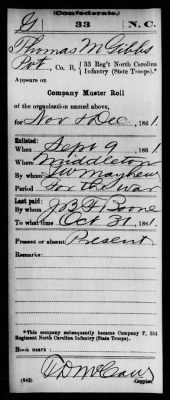 (Confederate.)
G 33 N.C.
Thomas M Gibbs
Pvt, Co. B, 33 Reg't North Carolina Infantry (State Troops).*
Appears on
Company Muster Roll
of the organization named above,
for Nov & Dec, 1861.
Enlisted:
When Sept 9, 1861.
Where Middleton
By whom J W Mayhew
Period for the war
Last paid:
By whom J. B. H. Boone
To what time Oct 31, 1861.
Present or absent Present
Remarks:
*This company subsequently became Company F, 33d Regiment North Carolina Infantry (State Troops).
Book mark:
(642) Copyist.